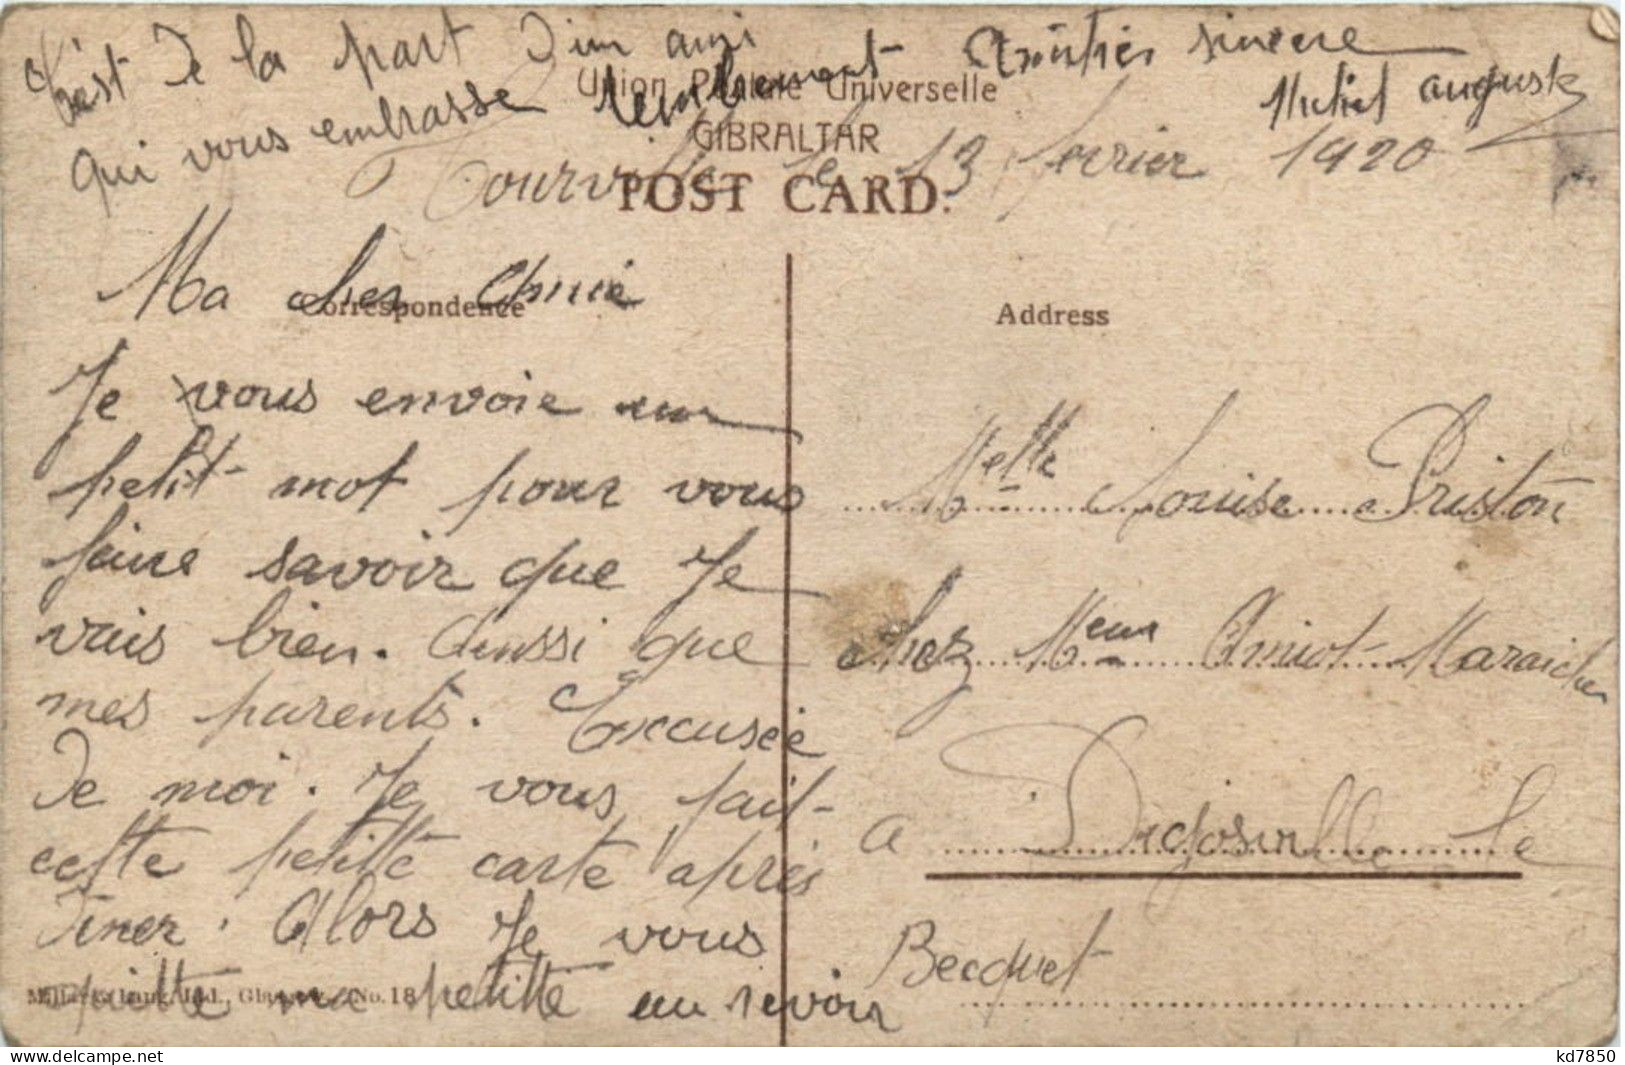 C'est de la part d'un ami
qui vous embrasse Amitiés sincere
auguste
Union Postale Universelle
GIBRALTAR
le 13 fevrier 1920
POST CARD.
Ma cher Amie
Correspondence
Je vous envoie un
petit mot pour vous
faire savoir que Je
vais bien. Aussi que
mes parents. Excusée
de moi. Je vous fait
cette petitte carte après
diner. Alors Je vous
quitte ma petitte au revoir
No. 18
Address
Melle Louise Priston
chez Meur Amiot Maraicher
a Digosville le
Becquet
kd7850